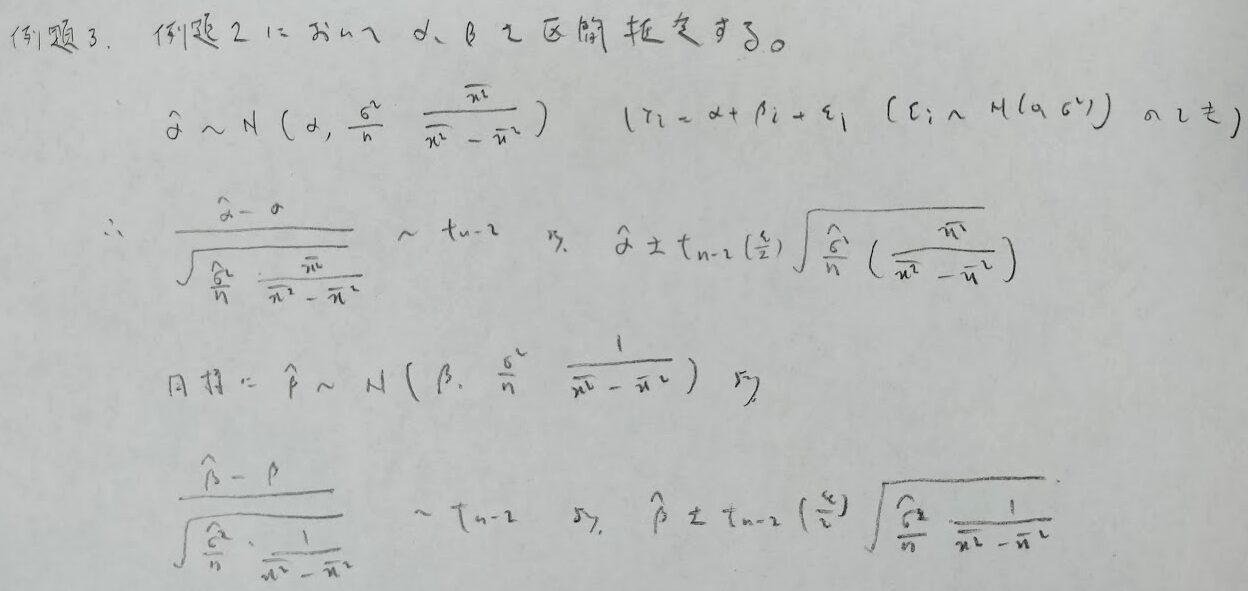 例題3. 例題2において α, β を区間推定する。
α̂ ~ N(α, σ²/n · x̄²̄/(x²̄ - x̄²)) (Yi = α + βi + εi (εi ~ N(0, σ²)) のとき)
∴ (α̂ - α)/√(σ̂²/n · x²̄/(x²̄ - x̄²)) ~ t_{n-2} より α̂ ± t_{n-2}(ε/2) √(σ̂²/n (x²̄/(x²̄ - x̄²)))
同様に β̂ ~ N(β, σ²/n · 1/(x²̄ - x̄²)) より
(β̂ - β)/√(σ̂²/n · 1/(x²̄ - x̄²)) ~ t_{n-2} より β̂ ± t_{n-2}(ε/2) √(σ̂²/n · 1/(x²̄ - x̄²))